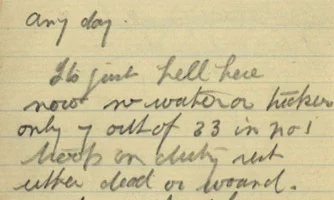 any day.
Its just hell here
now no water or tucker
only 7 out of 33 in no 1
troop on duty rest
either dead or wound.